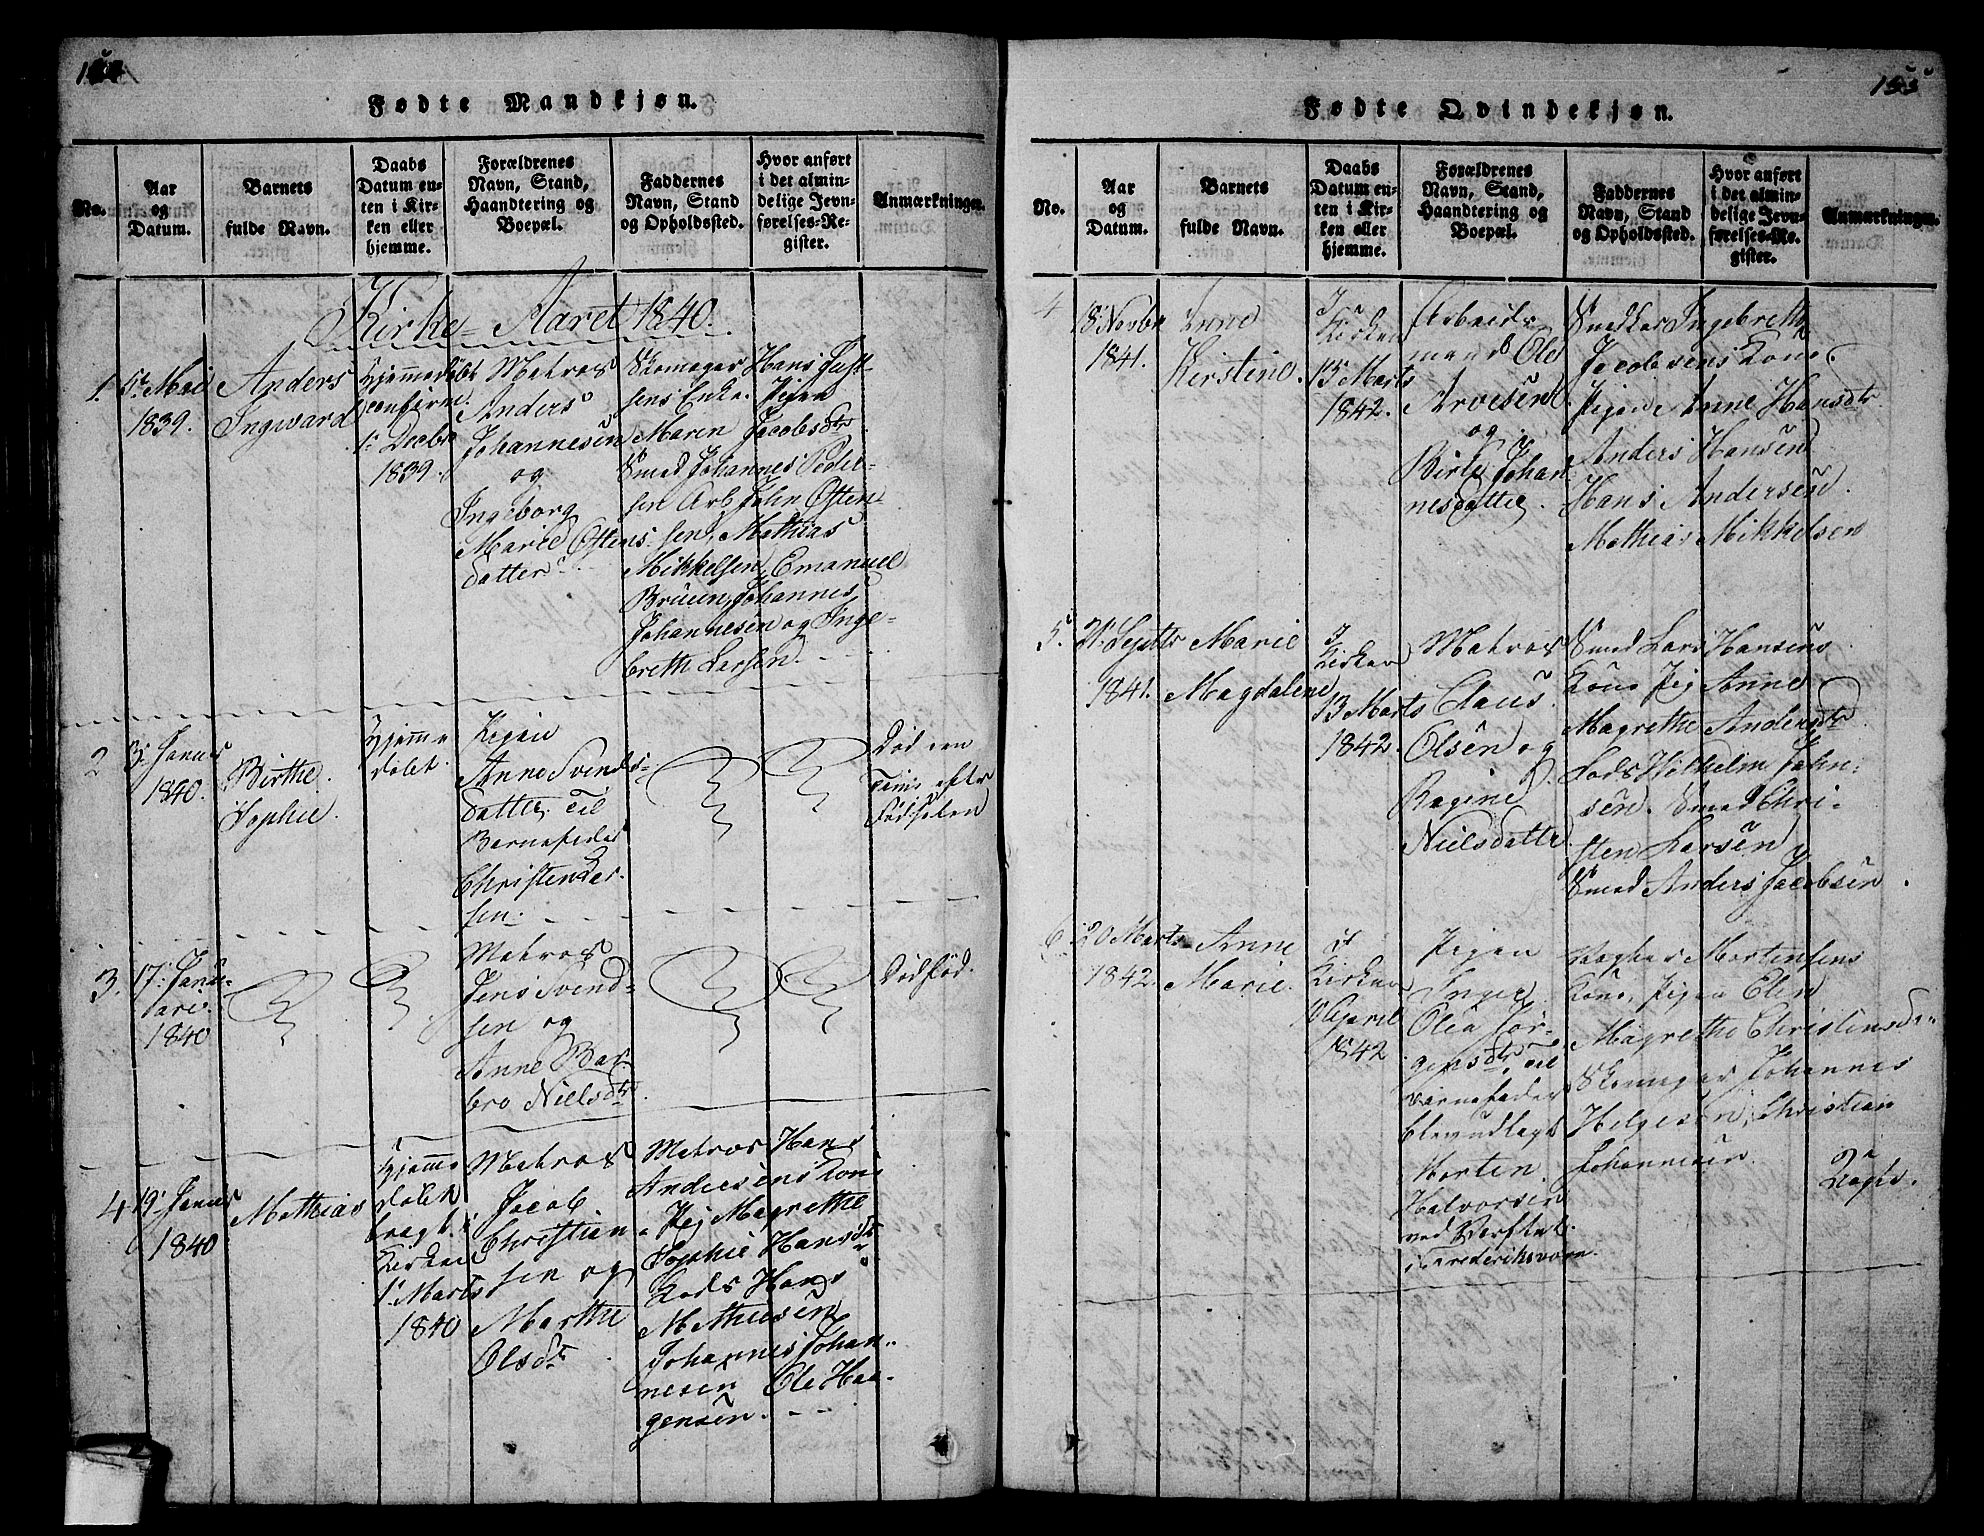 Fødte Mandkjøn.
No.
Aar
og
Datum.
Barnets
fulde Navn.
Daabs
Datum en-
ten i Kir-
ken eller
hjemme.
Forældrenes
Navn, Stand,
Haandtering og
Boepæl.
Faddernes
Navn, Stand
og Opholdssted.
Hvor anført
i det almin-
delige Jevn-
førelses-Re-
gister.
Anmærkninger.
Kirke-Aaret 1840.
1.
5te Mai
1839.
Anders
Ingward
Hjemmedøbt
confirm.
1 Decbr
1839.
Matros
Anders
Johannesen
og
Ingeborg
Marie Ostens
datter
Skomager Hans Just-
sens Enke. Pigen
Maren Jacobsdtr
Smed Johannes Peder-
sen Arb. John Osten-
sen, Mathias
Mikkelsen, Emanuel
Bruun, Johannes
Johannesen og Inge-
breth Larsen.
2
3 Januar
1840.
Birthe
Sophie.
Hjemme
døbt.
Pigen
Anne Svends-
datter. Til
Barnefader
Christen Lar-
sen.
Død en
Time efter
Fødselen
3.
17 Janu-
ari
1840
Matros
Jens Svend-
sen og
Anne Bar-
bro Nielsdtr.
Dødfød.
4
19 Januar
1840
Mathias
Hjemme
døbt
bragt i
Kirken
1 Marts
1840
Matros
Jacob
Christian
sen og
Marthe
Olsdtr
Matros Hans
Andersens Kone
Pig Magrethe
Sophie Hansdtr
Lods Hans
Mathiesen
Johannes Johan-
nesen Ole Haa-
gensen.
155
Fødte Qvindekjøn.
No.
Aar
og
Datum.
Barnets
fulde Navn.
Daabs
Datum en-
ten i Kir-
ken eller
hjemme.
Forældrenes
Navn, Stand,
Haandtering og
Boepæl.
Faddernes
Navn, Stand
og Opholdssted.
Hvor anført
i det almin-
delige Jevn-
førelses-Re-
gister.
Anmærkninger.
4
18 Novbr
1841.
Anne
Kirstine.
I
Kirken
15 Marts
1842.
Arbeids
mand Ole
Arvesen
og
Birte Johan
nesdatter.
Snedker Ingebreth
Jacobsens Kone
Pigen Anne Hansdtr
Anders Hansen
Hans Andersen
Mathias Mikkelsen
5.
21 Septbr
1841.
Marie
Magdalene
I
Kirken
13 Marts
1842.
Matros
Claus
Olsen og
Ragine
Nielsdatter
Smed Lars Hansens
Kone Pig Anne
Magrethe Andersdtr
Lods Wilhelm John-
sen. Smed Chri-
sten Larsen
Smed Anders Jacobsen.
6
20 Marts
1842.
Anne
Marie.
I
Kirken
April
1842
Pigen
Inger
Olea Jør-
gensdtr, til
Barnefader
blev udlagt
Morten
Halvorsen
ved Verftet
i Frederiksværn.
Mortensens
Kone, Pigen Elen
Magrethe Christinsda-
Skomager Johannes
Helgesen, Christian
Johannesen.